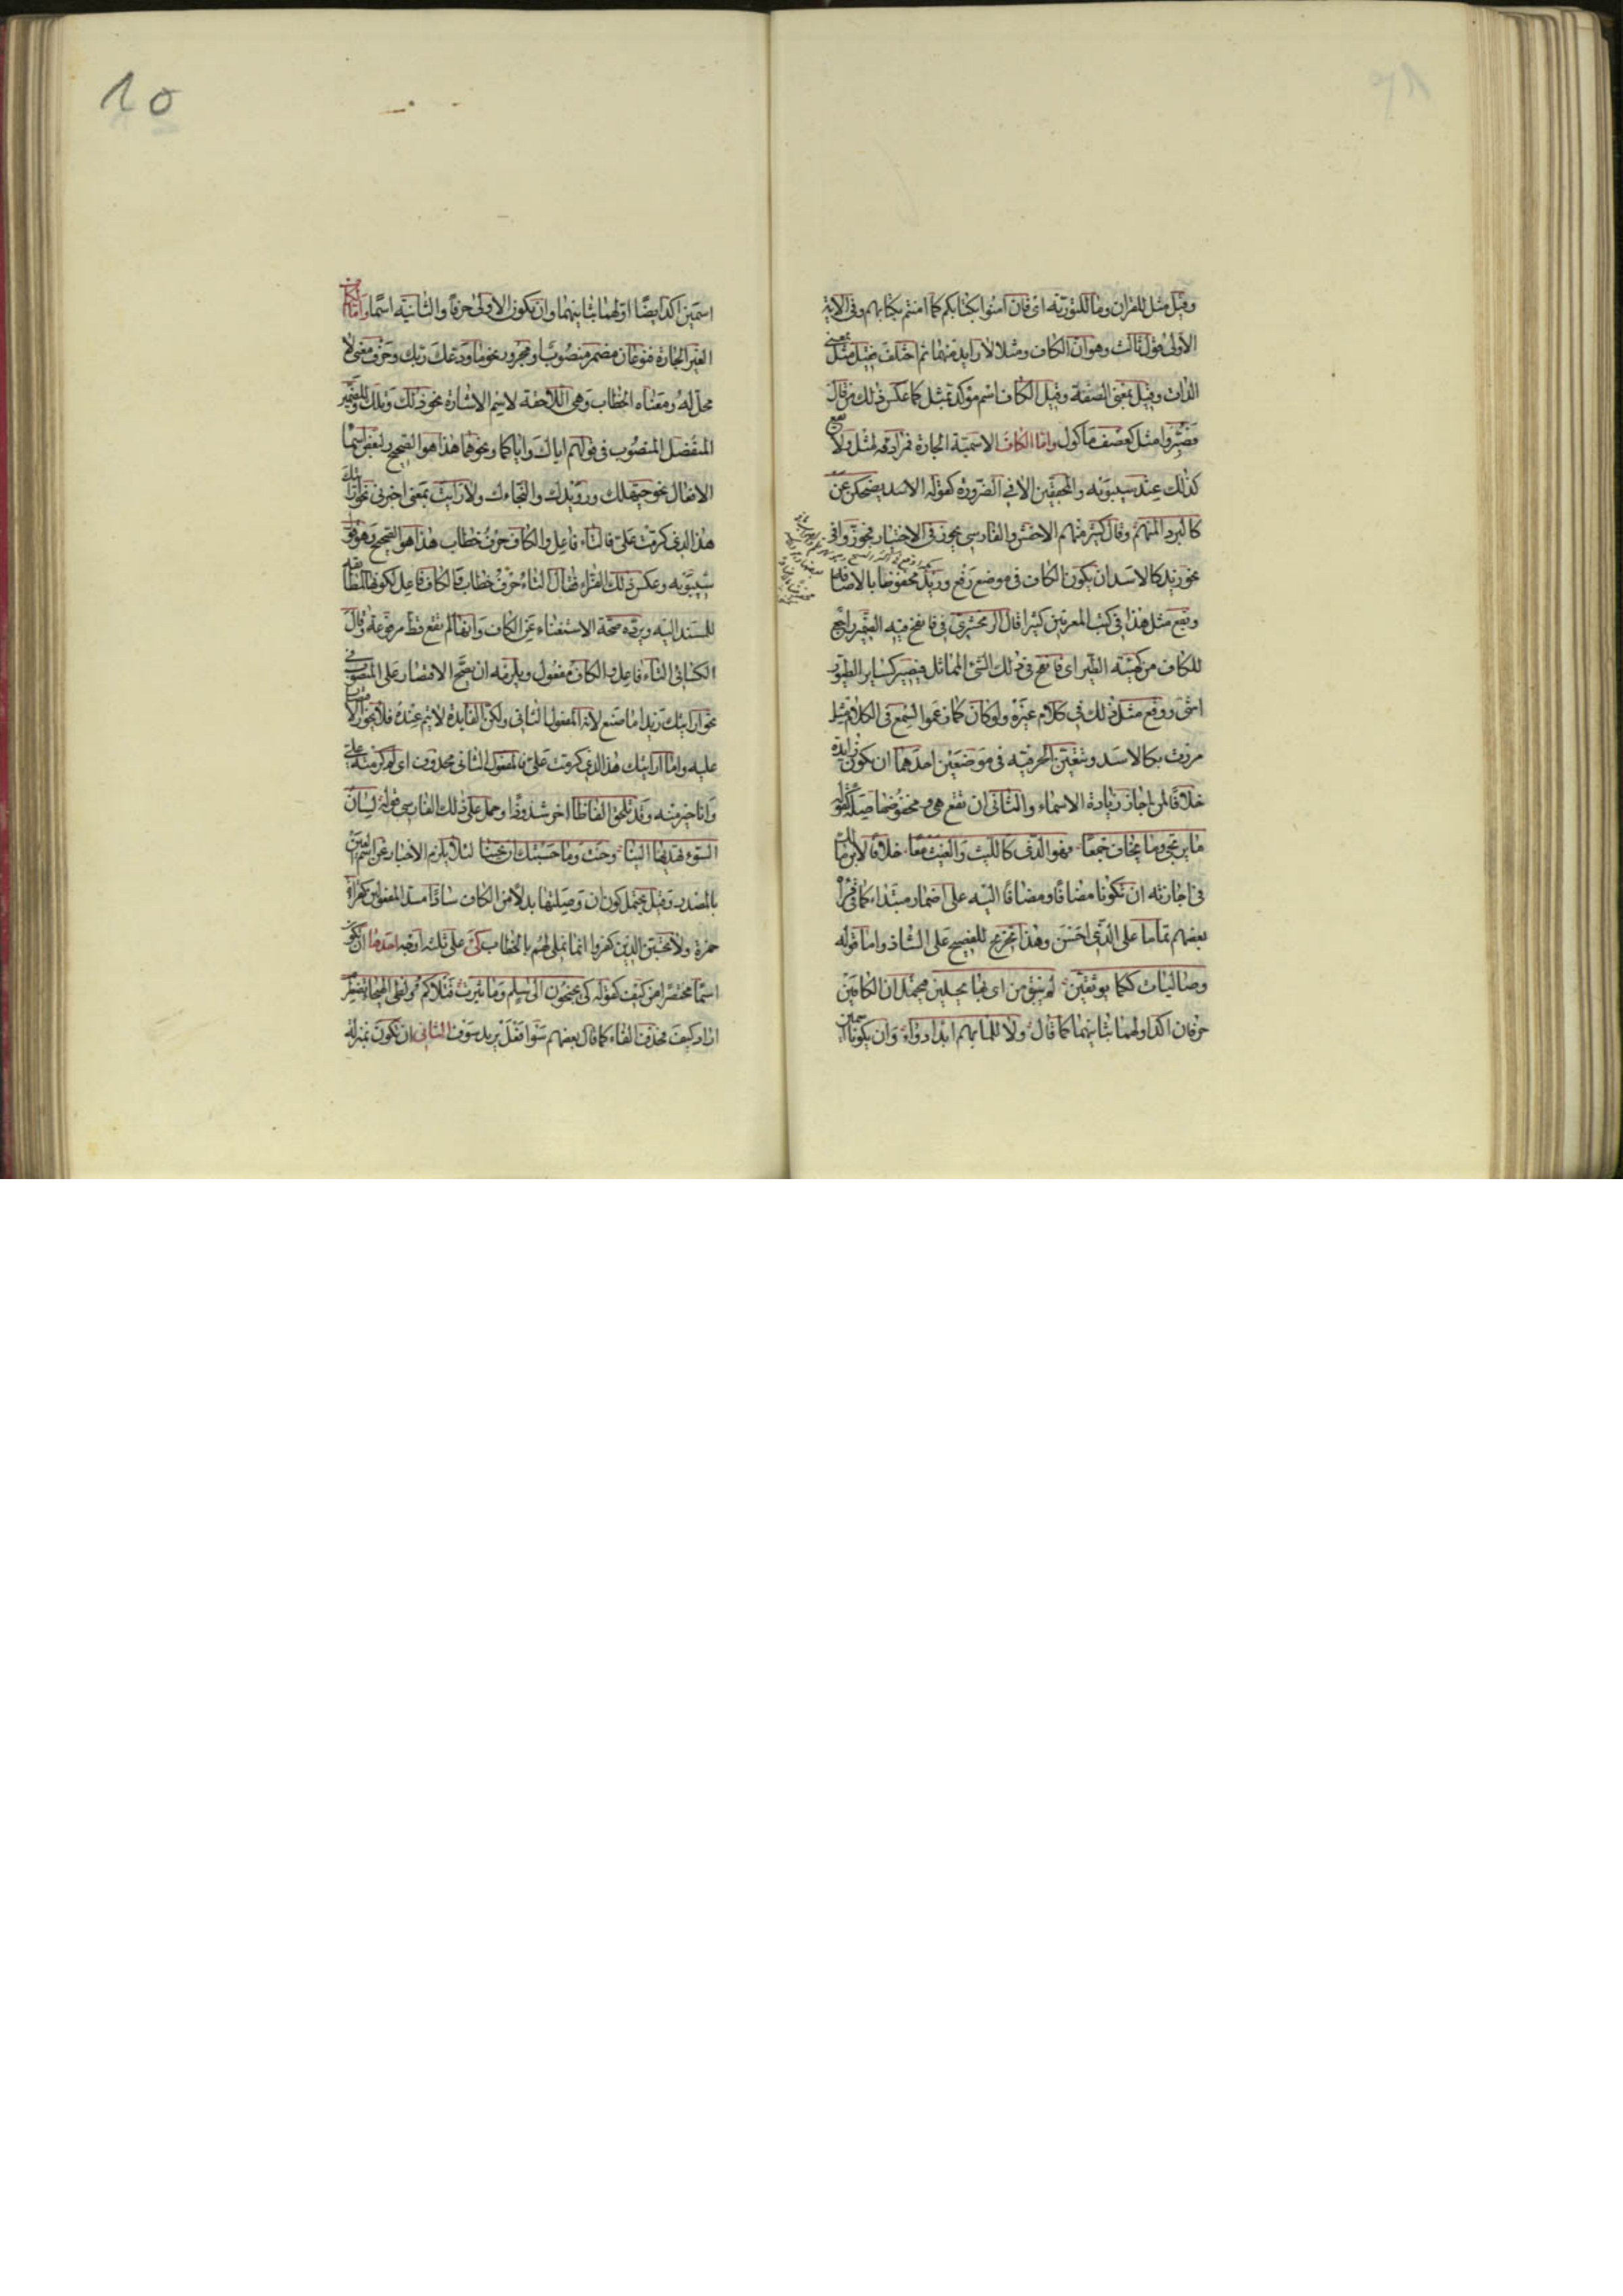 وقيل مثل للقرآن وما للتورية اى فان امنوا بكتابكم كما امنتم بكتابهم وفي الاية
الاولى قول ثالث وهو ان الكاف ومثلا لا زايد منهما ثم اختلف فقيل مثل بمعنى
الذات وقيل بمعنى الصفة وقيل الكاف اسم مؤكد بمثل كما عكس ذلك من قال
فصيروا مثل كعصف مأكول واما الكاف الاسمية الجارة فمرادفة لمثل ولا تقع
كذلك عند سيبويه والمحققين الا في الضرورة كقوله الاسد يضحكن عن
كالبرد المنهم وقال كثير منهم الاخفش والفارسي يجوز في الاختيار فجوزوا في
نحو زيد كالاسد ان يكون الكاف في موضع رفع وزيد مخفوضا بالاضافة
ويقع مثل هذا في كتب المعربين كثيرا قال الزمخشري في فانفخ فيه الضمير راجع
للكاف من كهيئة الطير اى فانفخ في ذلك الشئ المماثل فيصير كساير الطيور
انتهى ووقع مثل ذلك في كلام غيره ولو كان كما زعموا لسمع في الكلام مثل
مررت بكالاسد وتتعين الحرفية في موضعين احدهما ان يكون زايدة
خلافا لمن اجاز زيادة الاسماء والثاني ان تقع هي ومخفوضها صلة كقوله
ما يرتجى وما يخاف جمعا فهو الذى كالليث والغيث معا خلافا لابن مالك
فى اجازته ان تكونا مضافا ومضافا اليه على اضمار مبتداء كما في قراءة
بعضهم تماما على الذى احسن وهذا تخريج للفصيح على الشاذ واما قوله
وصاليات ككما يوثفين لم يبق من اى بها يحلين فيحتمل ان الكافين
حرفان اكد اولهما بثانيهما كما قال ولا للما بهم ابدا دواء وان يكونا اسمين
اسمين اكد ايضا اولهما بثانيهما وان تكون الاولى حرفا والثانية اسما واما الكاف
الغير الجارة فنوعان مضمر منصوب او مجرور نحو ما ودعك ربك وحرف معنى لا
محل له ومعناه الخطاب وهي اللاحقة لاسم الاشارة نحو ذلك وتلك وللضمير
المنفصل المنصوب في قولهم اياك واياكما ونحوهما هذا هو الصحيح ولبعض اسما
الافعال نحو حيهلك ورويدك والنجاءك ولارايت بمعنى اخبرني نحو ارايتك
هذا الذى كرمت على فالتاء فاعل والكاف حرف خطاب هذا هو الصحيح وهو قول
سيبويه وعكس ذلك الفراء فقال التاء حرف خطاب والكاف فاعل لكونها المطابقة
للمسند اليه ويرده صحة الاستغناء عن الكاف وانها لم تقع قط مرفوعة وقال
الكسائى التاء فاعل والكاف مفعول ويلزمه ان يصح الاقتصار على المنصوب في
نحو ارايتك زيدا ما صنع لانه المفعول الثاني ولكن الفايدة لا يتم عنده فلا يجوز الاقتصار
عليه واما ارايتك هذا الذى كرمت على فالمفعول الثاني محذوف اى لم كرمته على
وانا خير منه وقد تلحق الفاظا اخر شذوذا وحمل على ذلك الفارسي قوله لسان
السوء تهديها الينا وحنت وما حسبتك ان تحينا لئلا يلزم الاخبار عن اسم العين
بالمصدر وقيل يحتمل كون ان وصلتها بدلا من الكاف سادا مسد المفعولين كقراءة
حمزة ولا تحسبن الذين كفروا انما نملى لهم بالخطاب كى على ثلثة اوجه احدها ان تكون
اسما مختصرا من كيف كقوله كى تجنحون الى سلم وما ثئرت قتلاكم ولظى الهيجاء تضطرم
اراد كيف فحذف الفاء كما قال بعضهم سو افعل يريد سوف الثانى ان تكون بمنزلة
10